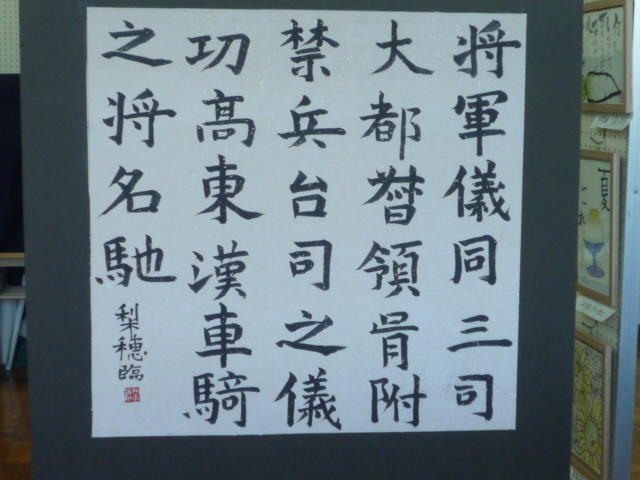 将軍儀同三司
大都督領附
禁兵台司之儀
功高東漢車騎
之将名馳
梨穂臨
夏